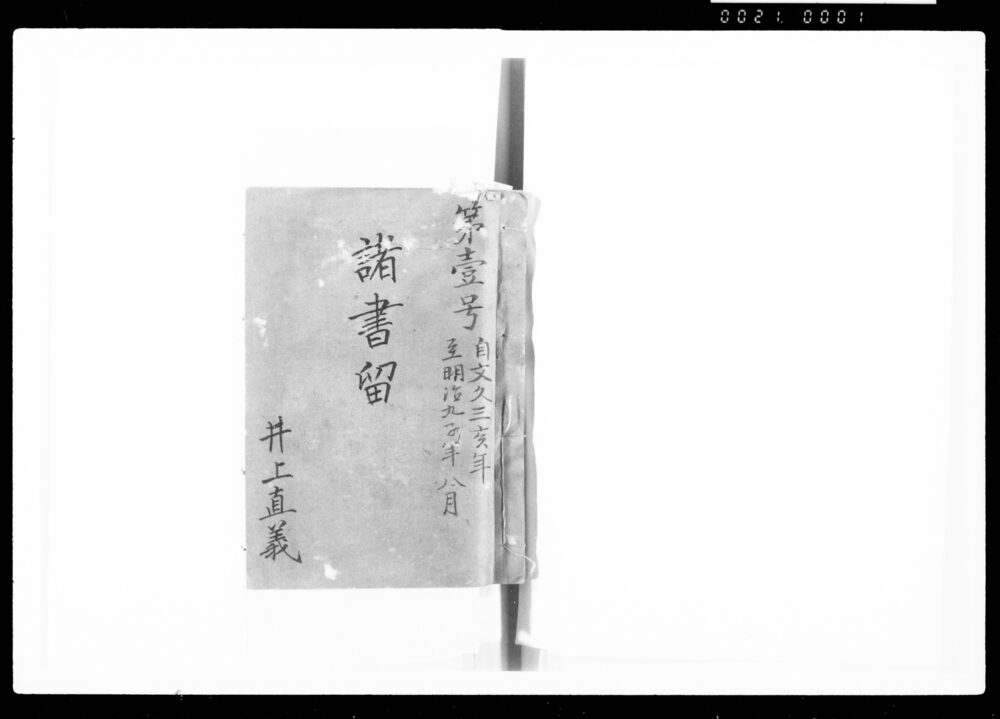 0021.0001
第壹号
自文久三亥年
至明治九子年八月
諸書留
井上直義